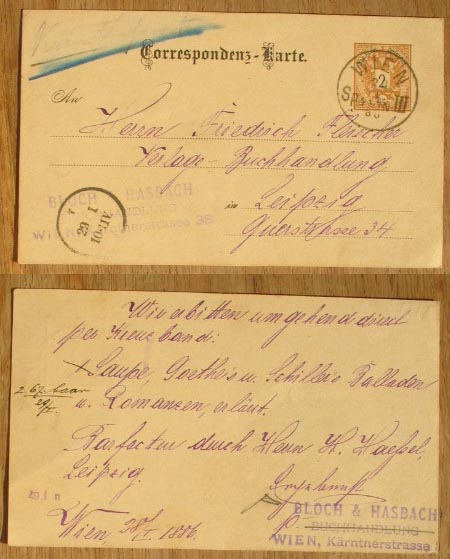 Correspondenz-Karte.
WIEN
2
III
An
Herrn Friedrich Fleischer
Verlags-Buchhandlung
in Leipzig
Querstrasse 34
BLOCH & HASBACH
BUCHHANDLUNG
WIEN, Kärntnerstrasse 38
29
I
10-11V.
Wir erbitten umgehend direct
per Kreuzband:
Saupe, Goethe's u. Schiller's Balladen
u. Romanzen, erläut.
Barfactur durch Herrn H. Haessel,
Leipzig.
baar
29/I.
Ergebenst
Wien 28/I. 1886.
BLOCH & HASBACH
BUCHHANDLUNG
WIEN, Kärntnerstrasse